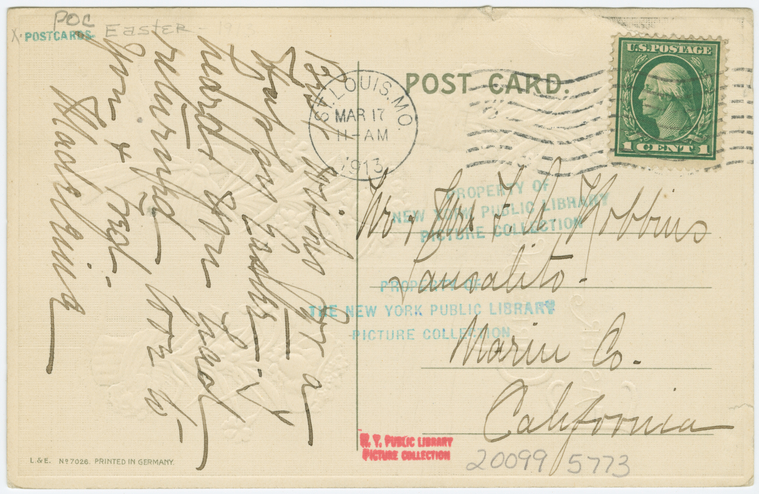 POC
X. POSTCARDS - Easter -
POST CARD.
ST. LOUIS. MO.
MAR 17
11-AM
1913
U.S. POSTAGE
1 CENT 1
Best wishes for a
Happy Easter - I
heard you had
returned. Love to
you & Fred -
Mr & Mrs F. A. Robbins
Sausalito -
Marin Co.
California
PROPERTY OF
NEW YORK PUBLIC LIBRARY
PICTURE COLLECTION
PROPERTY OF
THE NEW YORK PUBLIC LIBRARY
PICTURE COLLECTION
N. Y. PUBLIC LIBRARY
PICTURE COLLECTION
20099 5773
L.&E. No 7026. PRINTED IN GERMANY.